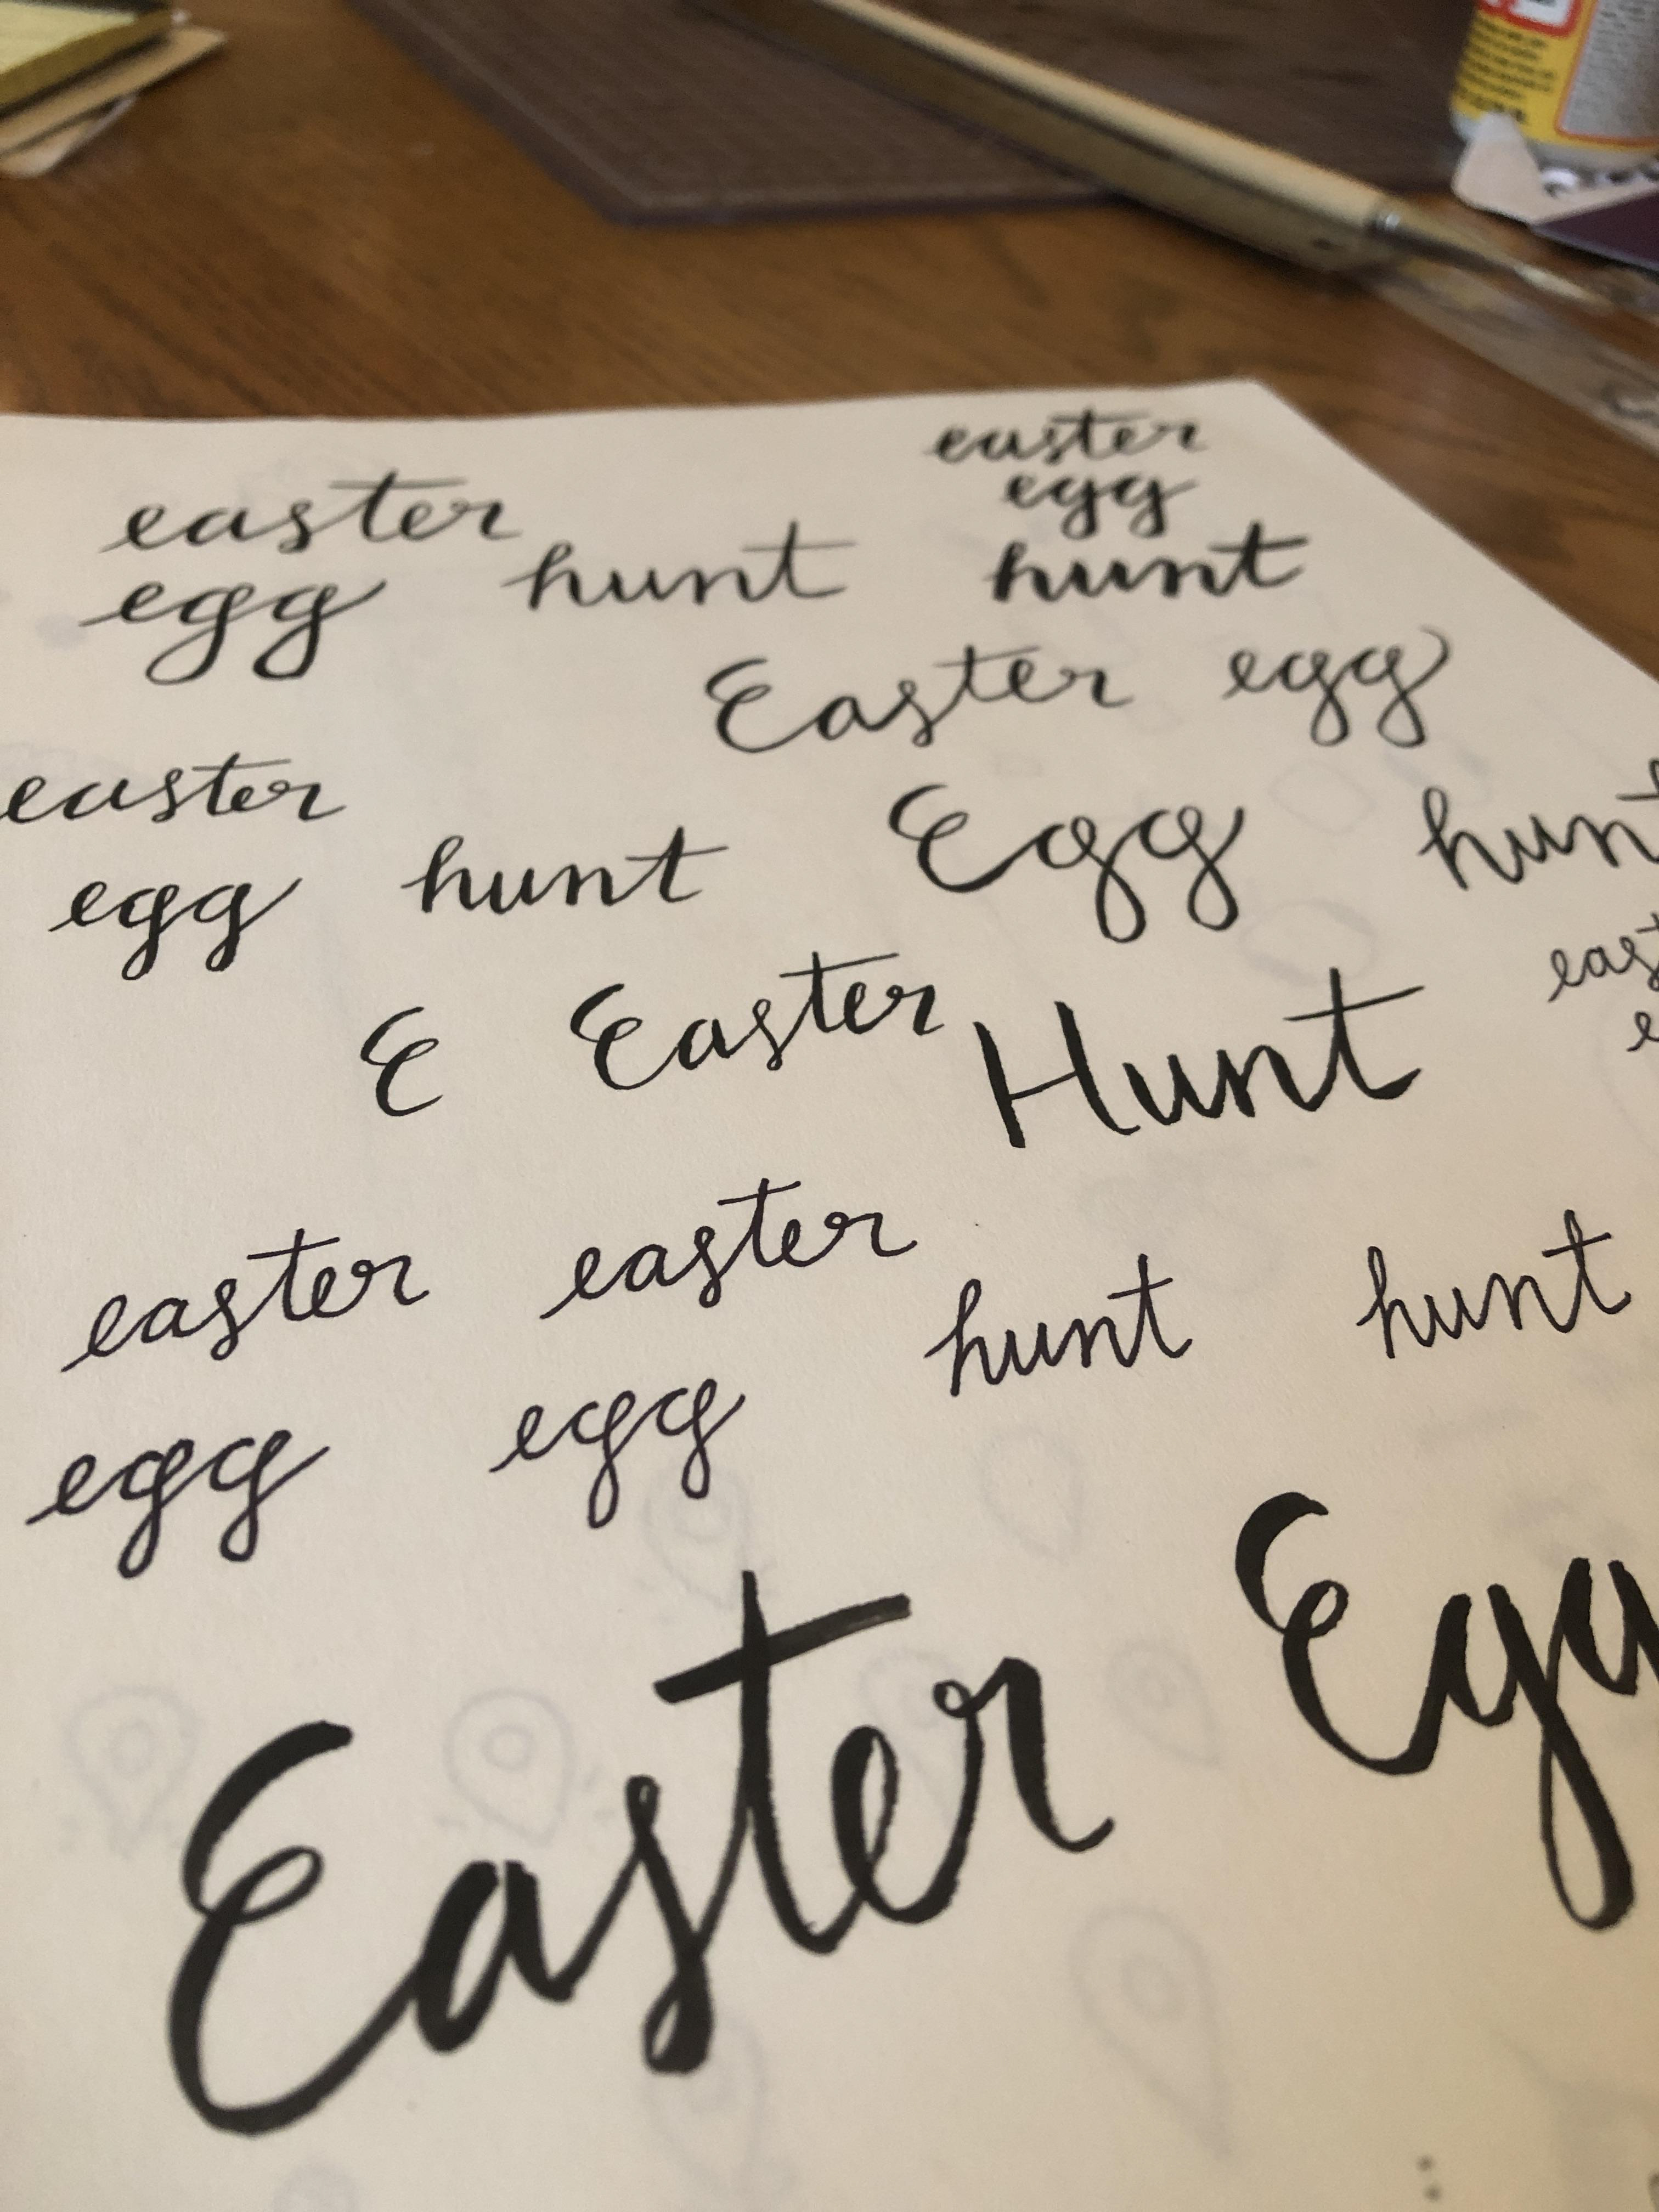 easter
egg
hunt
easter
egg
hunt
Easter egg
easter
egg hunt
Egg hunt
E Easter
Hunt
easter easter
hunt hunt
egg egg
Easter Egg